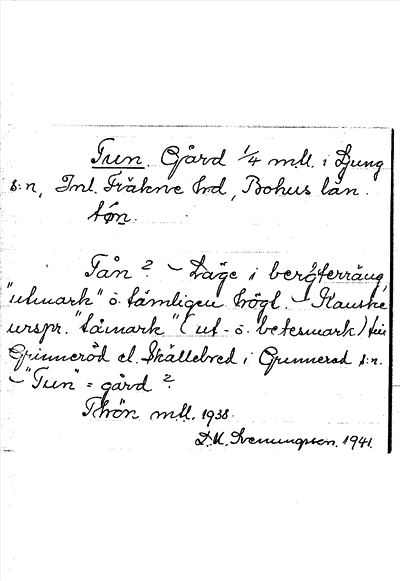 Tun. Gård 1/4 mtl. i Ljung
s:n, Inl. Fräkne hd, Bohus län.
tøn.
Tån? – Läge i bergterräng,
"utmark" o. tämligen högt. – Kanske
urspr. "tåmark" (ut- o. betesmark) till
Grinneröd el. Skällebred i Grinnerød s:n.
– "Tun" = gård?
Thön mtl. 1938.
D.A. Svenungsson. 1941.